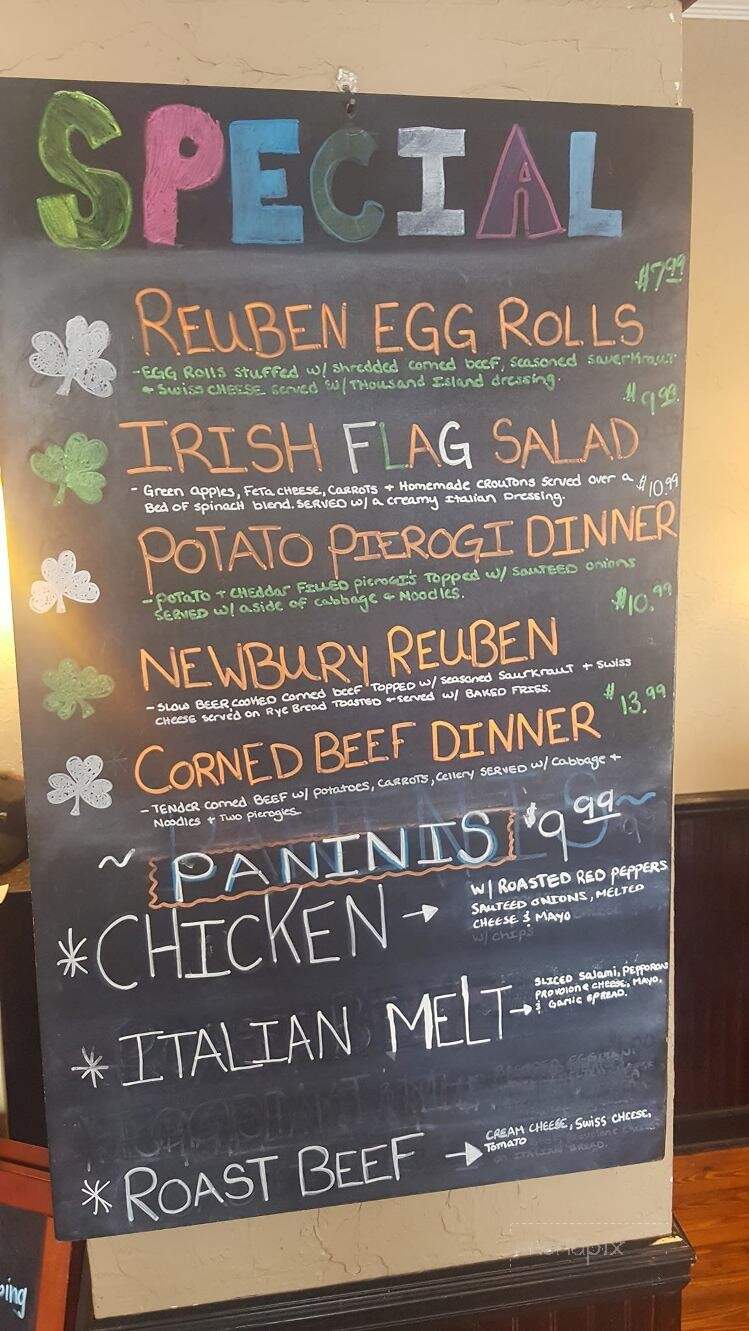 SPECIAL
$7.99
REUBEN EGG ROLLS
-EGG ROLLS STUFFED W/ SHredded corned beef, seasoned sauerkraut
+ SWISS CHEESE served W/ THousand Island dressing.
$9.99
IRISH FLAG SALAD
- Green apples, FeTa CHEESE, CARROTS + Homemade CROUTONS Served over a
Bed OF spinach blend. SERVED W/ a creamy Italian Dressing.
$10.99
POTATO PIEROGI DINNER
-POTATO + CHEDDar FILLED pierogi's Topped W/ SAUTEED onions
SERVED W/ a side of cabbage & Noodles.
$10.99
NEWBURY REUBEN
- SLOW BEER COOKED Corned beef TOPPED W/ seasoned Saurkraut + SWISS
CHEESE served on Rye Bread TOASTED + served W/ BAKED FRIES.
$13.99
CORNED BEEF DINNER
- TENDER Corned BEEF W/ potatoes, CARROTS, Cellery SERVED W/ Cabbage +
Noodles + Two pierogies.
~ PANINIS $9.99 ~
*CHICKEN → W/ ROASTED RED PEPPERS
SAUTEED ONIONS, MELTED
CHEESE & MAYO
w/ chips
*ITALIAN MELT → SLICED Salami, PEPPORONI
PROVOLONE CHEESE, MAYO,
& Garlic SPREAD.
*ROAST BEEF → CREAM CHEESE, SWISS CHEESE,
Tomato
ON ITALIAN BREAD.
ping